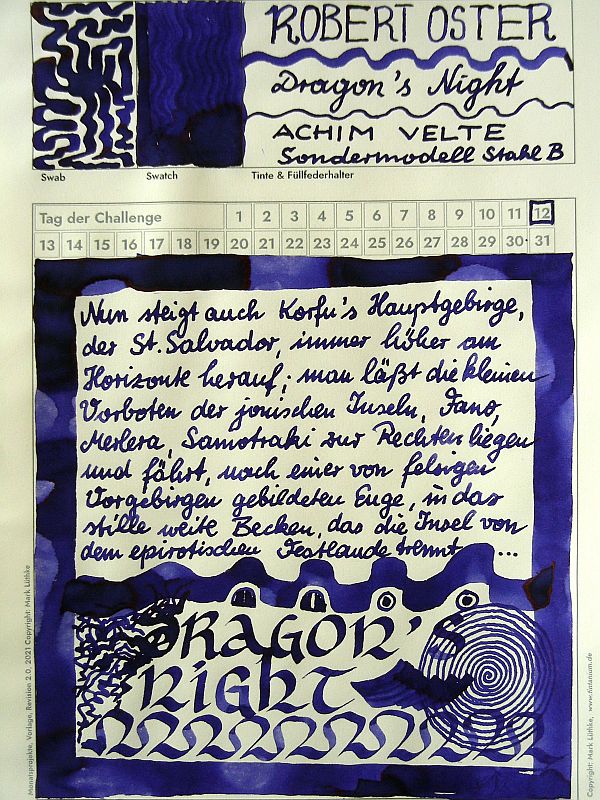 ROBERT OSTER
Dragon's Night
ACHIM VELTE
Sondermodell Stahl B
Swab Swatch Tinte & Füllfederhalter
Tag der Challenge 1 2 3 4 5 6 7 8 9 10 11 12
13 14 15 16 17 18 19 20 21 22 23 24 25 26 27 28 29 30 31
Nun steigt auch Korfu's Hauptgebirge,
der St. Salvador, immer höher am
Horizonte herauf; man läßt die kleinen
Vorboten der jonischen Inseln, Fano,
Merlera, Samotraki zur Rechten liegen
und fährt, nach einer von felsigen
Vorgebirgen gebildeten Enge, in das
stille weite Becken, das die Insel von
dem epirotischen Festlande trennt ...
DRAGON'S
NIGHT
Monatsprojekte, Vorlage, Revision 2.0, 2021 Copyright: Mark Lüthke
Copyright: Mark Lüthke, www.fintanium.de